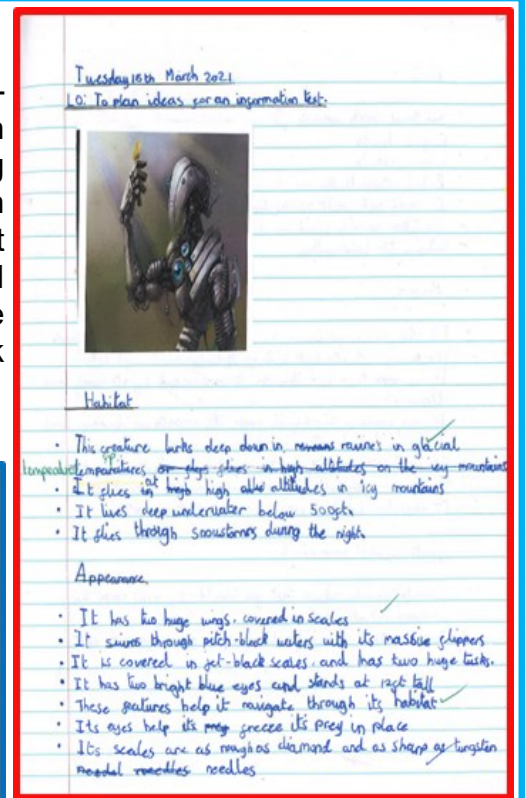 Tuesday March 2021
LO: To plan ideas for an information text.
Habitat
• This creature lurks deep down in ravines in glacial
temparatures or flys flies in high altitudes on the icy mountains
• It flies in at high high altitudes in icy mountains
• It lives deep underwater below 500ft.
• It flies through snowstorms during the night.
Appearance
• It has two huge wings, covered in scales
• It swims through pitch-black waters with its massive flippers
• It is covered in jet-black scales, and has two huge tusks.
• It has two bright blue eyes and stands at 12ft tall
• These features help it navigate through its habitat
• Its eyes help its prey freeze it's prey in place
• Its scales are as rough as diamond and as sharp as tungsten
needles needles